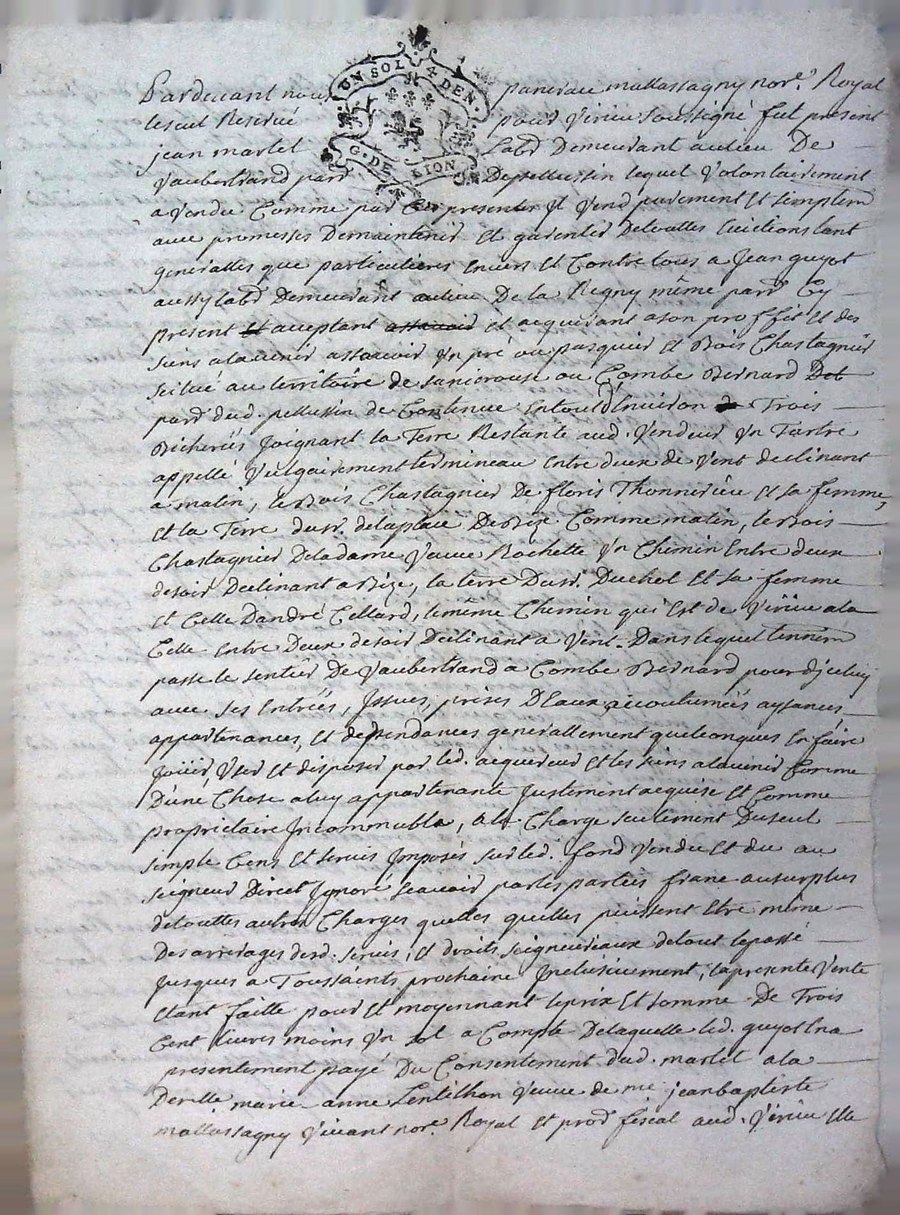 UN SOL 4 DEN
G. DE LION
Pardevant nous mallassagny nore. Royal
Reservé pour Virieu soussigné fut present
jean martet Labr Demeurant aulieu De
Vaubertrand parr Depellussin lequel Volontairement
a Vendu Comme par Ces presentes Il Vend purement Et simplem
avec promesses Demaintenir Et garentir Detoutes Evictions tant
generalles que particulieres Envers Et Contre tous a Jean guyot
aussy Labr Demeurant aulieu De la Regny même parr Cy
present Et acceptant assavoir et acquerant a son proffit Et des
siens alavenir assavoir Vn pré ou pasquier Et Bois Chastagnier
scitué au territoire de ou Combe Bernard Det
parr dud. pellussin de Contenue Entout Denviron Trois
Bicherées Joignant la Terre Restante aud. Vendeur Vn Tartre
appellé Vulgairement termineau Entre deux de Vent declinant
a matin, le Bois Chastagnier De floris Thonnerieu Et sa femme,
Et la Terre dusr. delaplace DeBize Comme matin, le Bois
Chastagnier Deladame Veuve Rochette Vn Chemin Entre deux
desoir Declinant a Bize, la terre Dusr. Duchol Et sa femme
Et Celle Dandré Cellard, le même Chemin qui Est de Virieu ala
Celle Entre Deux desoir Declinant a Vent. Dans lequel tennem
passe le sentier De Vaubertrand a Combe Bernard pour dJceluy
avec ses Entrées, Jssues, prises DEaux, accoutumées aysances
appartenances, Et dependances generallement quelconques En faire
Jouiir, Vser Et disposer par led. acquereur Et les siens alavenir Comme
Dune Chose aluy appartenante Justement acquise Et Comme
propriétaire Jncommutable, ala Charge seulement Duseul
simple Cens Et servis Jmposés surled. fond Vendu Et du au
seigneur Direct Jgnoré seavoir parles parties franc ausurplus
detouttes autres Charges quelles quelles puissent Etre même
Des arrerages desd. servis, Et droits seigneureaux detout lepassé
Jusques a Toussaints prochaine Jnclusivement, la presente Vente
Etant faitte pour Et moyennant leprix Et somme De Trois
Cent livres moins Vn sol a Compte Delaquelle led. guyot Ena
presentement payé Du Consentement dud. martet ala
Delle marie anne Lentilhon Veuve de me jeanbaptiste
mallassagny Vivant nore. Royal Et procr fiscal aud. Virieu Elle